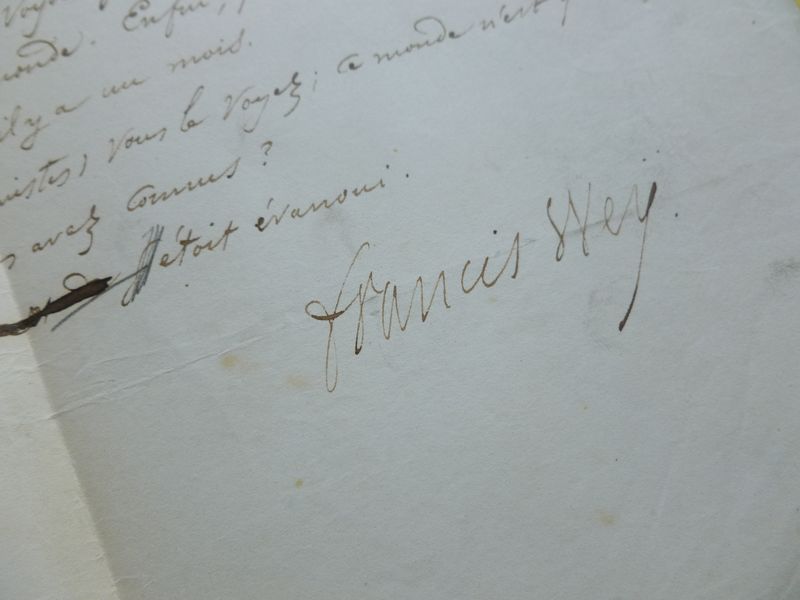 Voyez
monde. Enfin,
il y a un mois.
vous le voyez; ce monde n'est
avez connus?
étoit évanoui.
Francis Wey.